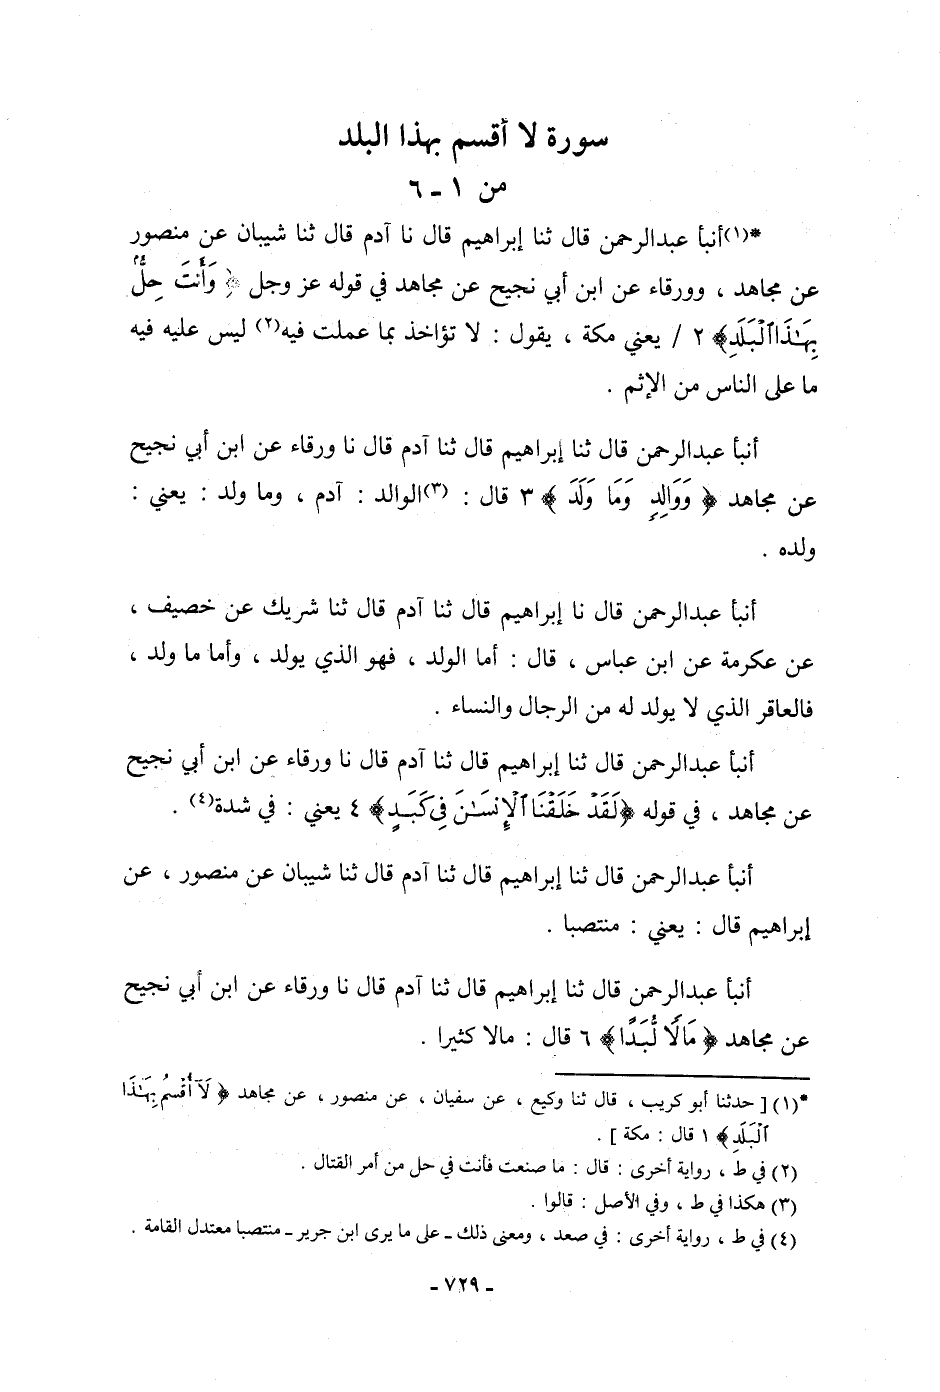 سورة لا أقسم بهذا البلد
من ١ ـ ٦
*(١)أنبأ عبدالرحمن قال ثنا إبراهيم قال نا آدم قال ثنا شيبان عن منصور
عن مجاهد ، وورقاء عن ابن أبي نجيح عن مجاهد في قوله عز وجل ﴿ وَأَنتَ حِلٌّۢ
بِهَـٰذَا ٱلۡبَلَدِ﴾ ٢ / يعني مكة ، يقول : لا تؤاخذ بما عملت فيه(٢) ليس عليه فيه
ما على الناس من الإثم .
أنبأ عبدالرحمن قال ثنا إبراهيم قال ثنا آدم قال نا ورقاء عن ابن أبي نجيح
عن مجاهد ﴿ وَوَالِدٖ وَمَا وَلَدَ ﴾ ٣ قال : (٣)الوالد : آدم ، وما ولد : يعني :
ولده .
أنبأ عبدالرحمن قال نا إبراهيم قال ثنا آدم قال ثنا شريك عن خصيف ،
عن عكرمة عن ابن عباس ، قال : أما الولد ، فهو الذي يولد ، وأما ما ولد ،
فالعاقر الذي لا يولد له من الرجال والنساء .
أنبأ عبدالرحمن قال ثنا إبراهيم قال ثنا آدم قال نا ورقاء عن ابن أبي نجيح
عن مجاهد ، في قوله ﴿لَقَدۡ خَلَقۡنَا ٱلۡإِنسَـٰنَ فِي كَبَدٍ﴾ ٤ يعني : في شدة(٤) .
أنبأ عبدالرحمن قال ثنا إبراهيم قال ثنا آدم قال ثنا شيبان عن منصور ، عن
إبراهيم قال : يعني : منتصبا .
أنبأ عبدالرحمن قال ثنا إبراهيم قال ثنا آدم قال نا ورقاء عن ابن أبي نجيح
عن مجاهد ﴿ مَالٗا لُّبَدًا﴾ ٦ قال : مالا كثيرا .
*(١) [ حدثنا أبو كريب ، قال ثنا وكيع ، عن سفيان ، عن منصور ، عن مجاهد ﴿ لَآ أُقۡسِمُ بِهَـٰذَا
ٱلۡبَلَدِ﴾ ١ قال : مكة ] .
(٢) في ط ، رواية أخرى : قال : ما صنعت فأنت في حل من أمر القتال .
(٣) هكذا في ط ، وفي الأصل : قالوا .
(٤) في ط ، رواية أخرى : في صعد ، ومعنى ذلك ـ على ما يرى ابن جرير ـ منتصبا معتدل القامة .
ـ ٧٢٩ ـ